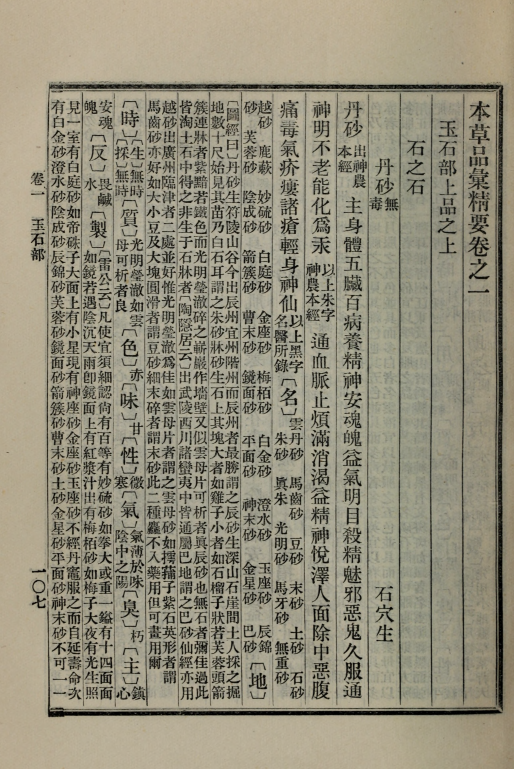 本草品彙精要卷之一
玉石部上品之上
石之石
丹砂無毒 石穴生
丹砂出神農本經主身體五臟百病養精神安魂魄益氣明目殺精魅邪惡鬼久服通
神明不老能化爲汞以上朱字神農本經通血脈止煩滿消渴益精神悅澤人面除中惡腹
痛毒氣疥瘻諸瘡輕身神仙以上黑字名醫所錄〔名〕雲丹砂 馬齒砂 豆砂 末砂 土砂 石砂 朱砂 眞朱 光明砂 馬牙砂 無重砂
越砂 鹿蔌 妙硫砂 白庭砂 金座砂 梅栢砂 白金砂 澄水砂 玉座砂 辰錦
砂 芙蓉砂 陰成砂 箭簇砂 曹末砂 鏡面砂 平面砂 神末砂 金星砂 巴砂〔地〕
〔圖經曰〕丹砂生符陵山谷今出辰州宜州階州而辰州者最勝謂之辰砂生深山石崖間土人採之掘
地數十尺始見其苗乃白石耳謂之朱砂牀砂生石上其塊大者如雞子小者如石榴子狀若芙蓉頭箭
簇連牀者紫黯若鐵色而光明瑩澈碎之嶄巖作墻壁又似雲母片可析者眞辰砂也無石者彌佳過此
皆淘土石中得之非生于石牀者〔陶隱居云〕出武陵西川諸蠻夷中皆通屬巴地謂之巴砂仙經亦用
越砂出廣州臨津者二處並好惟光明瑩澈爲佳如雲母片者謂之雲母砂如樗蒱子紫石英形者謂
馬齒砂亦好如大小豆及大塊圓滑者謂豆砂細末碎者謂末砂此二種麤不入藥用但可畫用爾
〔時〕〔生〕無時〔採〕無時〔質〕光明瑩澈如雲母可析者良〔色〕赤〔味〕甘〔性〕微寒〔氣〕氣薄於味陰中之陽〔臭〕朽〔主〕鎮心
安魂魄〔反〕畏鹹水〔製〕〔雷公云〕凡使宜須細認尚有百等有妙硫砂如拳大或重一鎰有十四面面
如鏡若遇陰沉天雨即鏡面上有紅漿汁出有梅栢砂如梅子大夜有光生照
見一室有白庭砂如帝珠子大面上有小星現有神座砂金座砂玉座砂不經丹竈服之而自延壽命次
有白金砂澄水砂陰成砂辰錦砂芙蓉砂鏡面砂箭簇砂曹末砂土砂金星砂平面砂神末砂不可一一
卷一 玉石部
一〇七